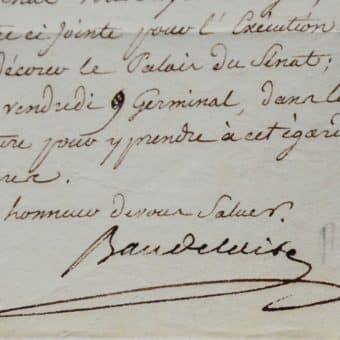 re ci Jointe pour l'Exécution
décorer le Palais du Sénat;
vendredi 9 Germinal, dans la
pour y prendre à cet égard
honneur de vous Saluer.
Baudelaire